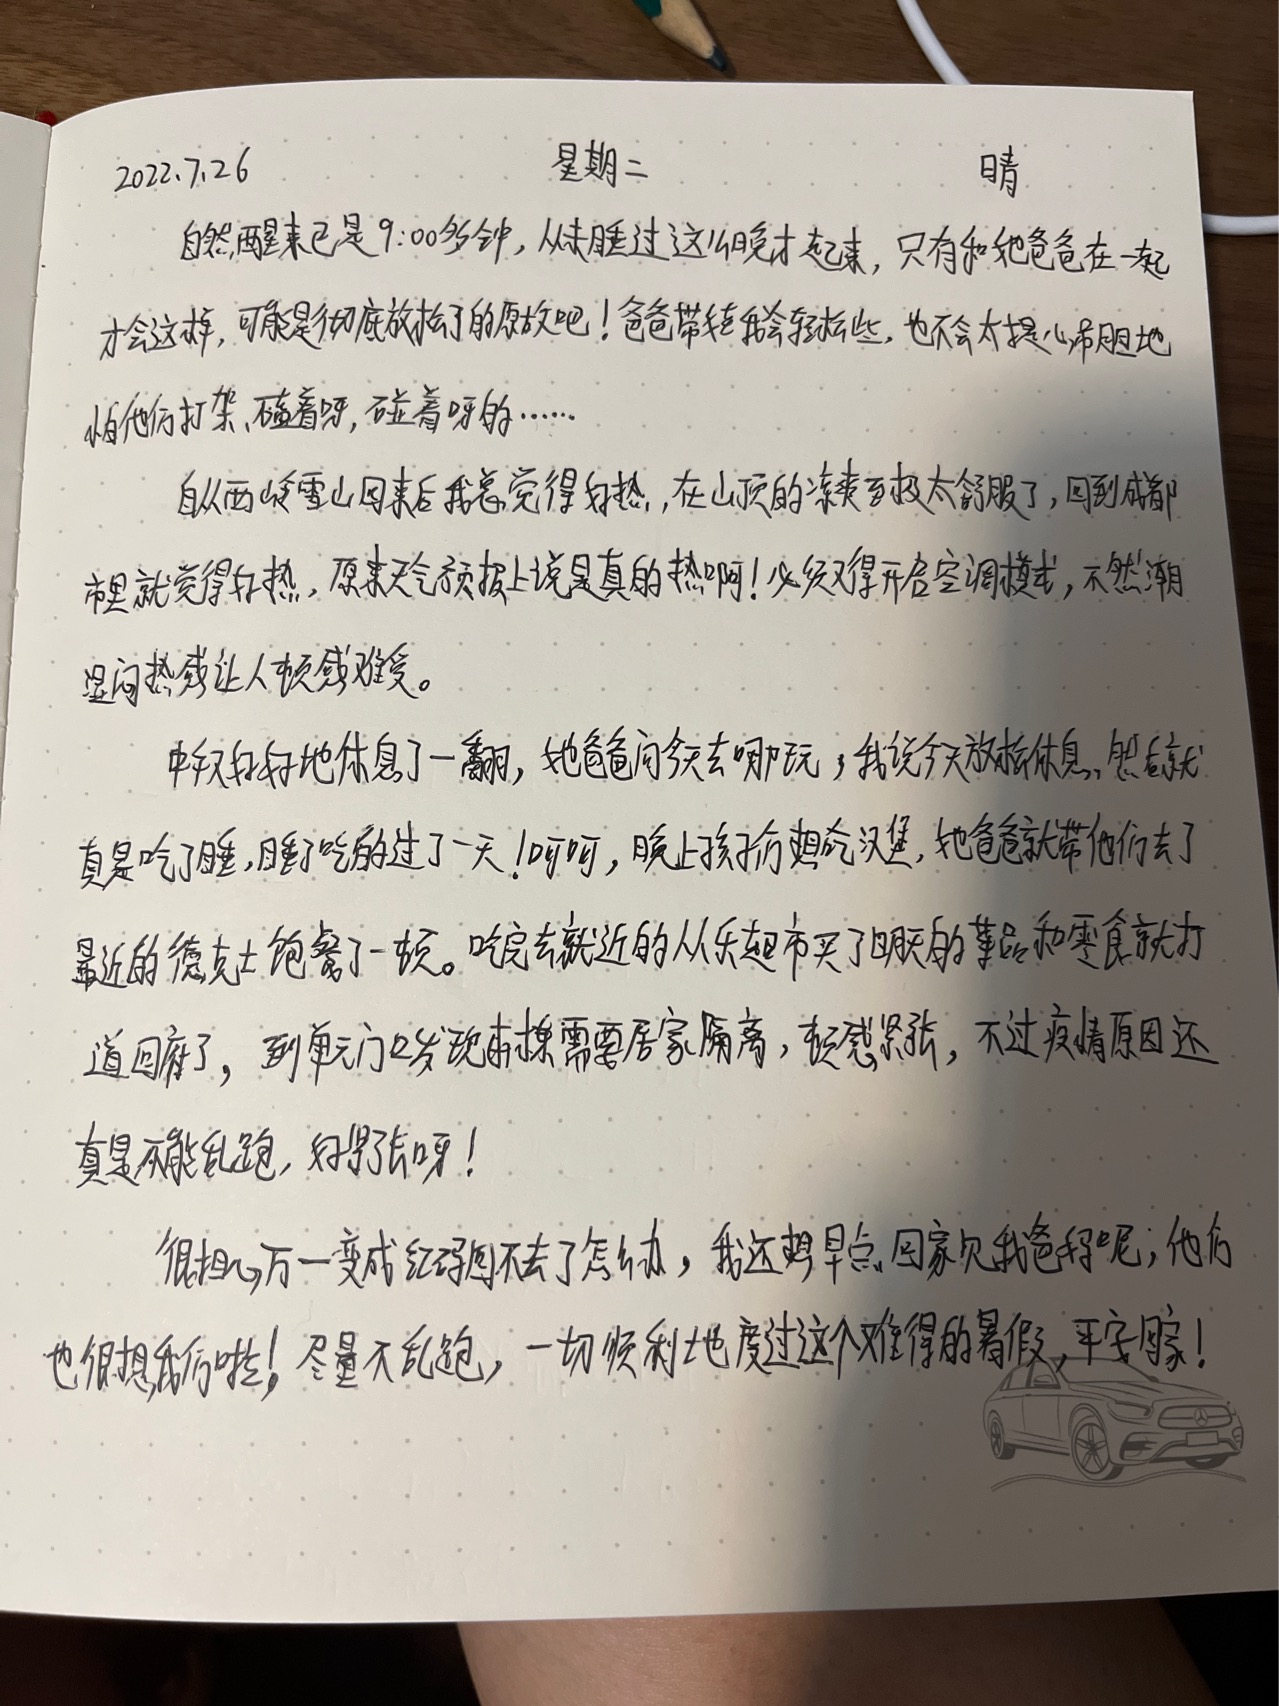 2022.7.26 星期二 晴
自然醒来已是9:00多钟，从未睡过这么晚才起来，只有和她爸爸在一起
才会这样，可能是彻底放松了的原故吧！爸爸带娃我会轻松些，也不会太提心吊胆地
怕他们打架、磕着呀，碰着呀的……
自从西岭雪山回来后我总觉得好热，在山顶的凉爽至极太舒服了，回到成都
市里就觉得好热，原来天气预报上说是真的热啊！必须得开启空调模式，不然潮
湿闷热感让人顿感难受。
中午又好好地休息了一翻，她爸爸问今天去哪玩，我说今天放松休息，然后就
真是吃了睡，睡了吃的过了一天！呵呵，晚上孩子们想吃汉堡，她爸爸就带他们去了
最近的德克士饱餐了一顿。吃完去就近的从乐超市买了明天的菜品和零食就打
道回府了，到单元门口发现有栋需要居家隔离，顿感紧张，不过疫情原因还
真是不能乱跑，好紧张呀！
很担心万一变成红码回不去了怎么办，我还想早点回家见我爸妈呢；他们
也很想我们啦！尽量不乱跑，一切顺利地度过这个难得的暑假，平安回家！